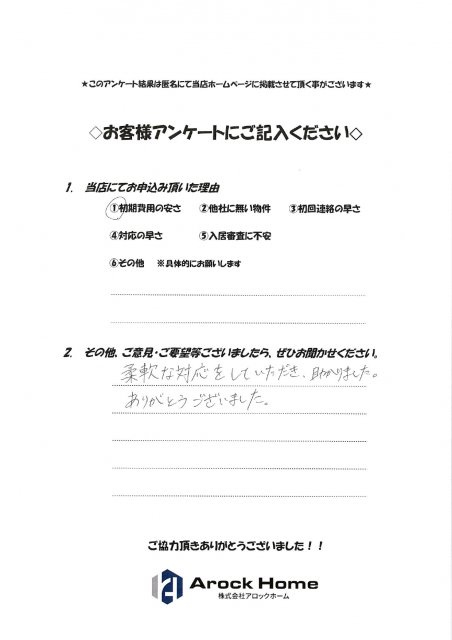 ★このアンケート結果は匿名にて当店ホームページに掲載させて頂く事がございます★
◇お客様アンケートにご記入ください◇
1. 当店にてお申込み頂いた理由
①初期費用の安さ ②他社に無い物件 ③初回連絡の早さ
④対応の早さ ⑤入居審査に不安
⑥その他 ※具体的にお願いします
2. その他、ご意見・ご要望等ございましたら、ぜひお聞かせください。
柔軟な対応をしていただき、助かりました。
ありがとうございました。
ご協力頂きありがとうございました！！
Arock Home
株式会社アロックホーム